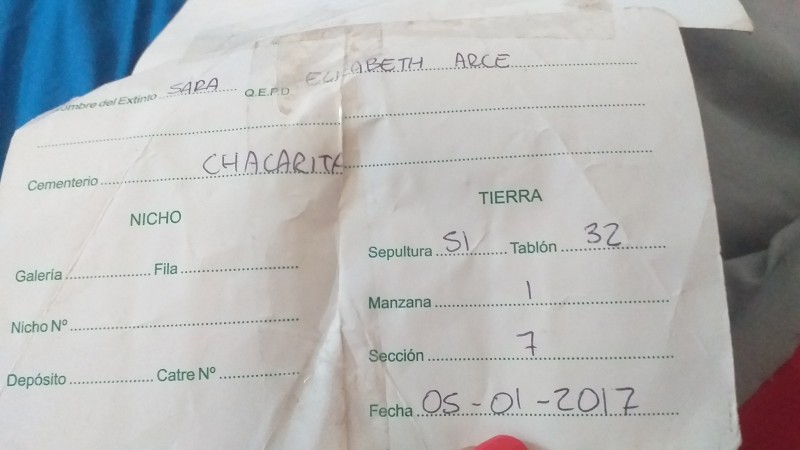 Nombre del Extinto SARA Q.E.P.D ELIZABETH ARCE
Cementerio CHACARITA
NICHO
TIERRA
Galería Fila
Sepultura SI Tablón 32
Nicho Nº
Manzana 1
Depósito Catre Nº
Sección 7
Fecha 05-01-2017